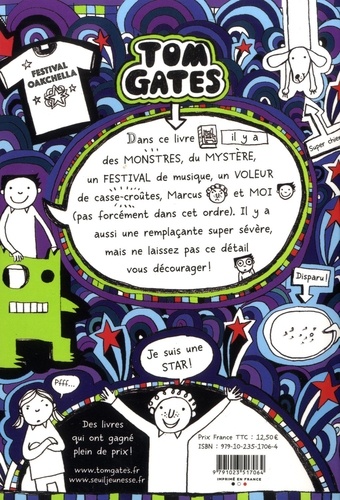 TOM
GATES
FESTIVAL
OAKCHELLA
Super chien
Dans ce livre il y a
des MONSTRES, du MYSTÈRE,
un FESTIVAL de musique, un VOLEUR
de casse-croûtes, Marcus et MOI
(pas forcément dans cet ordre). Il y a
aussi une remplaçante super sévère,
mais ne laissez pas ce détail
vous décourager!
Disparu!
Je suis une
STAR!
Pfff...
Des livres
qui ont gagné
plein de prix!
www.tomgates.fr
www.seuiljeunesse.fr
Prix France TTC : 12,50 €
ISBN : 979-10-235-1706-4
9 791023 517064
IMPRIMÉ EN FRANCE